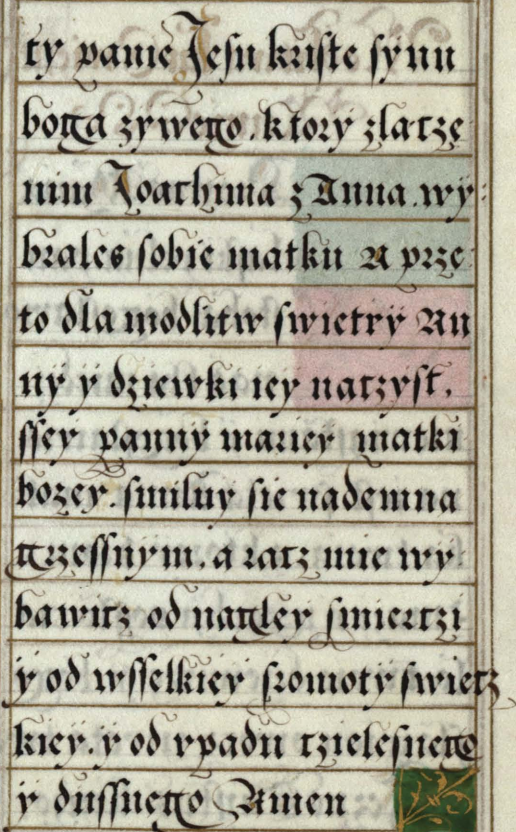 ty panie Jesu kriste synu
boga zywego. ktory zlacze
nim Joachima z Anna. wy:
brales sobie matku A prze
to dla modlitw swietey An
ny y dziewki iey naczyst,
ssey panny mariey matki
bozey. smiluy sie nademna
grzessnym. a racz mie wy
bawitz od nagley smiertzi
y od wsselkiey sromoty swietz
kiey. y od vpadu tzielesnego
y dussnego Amen